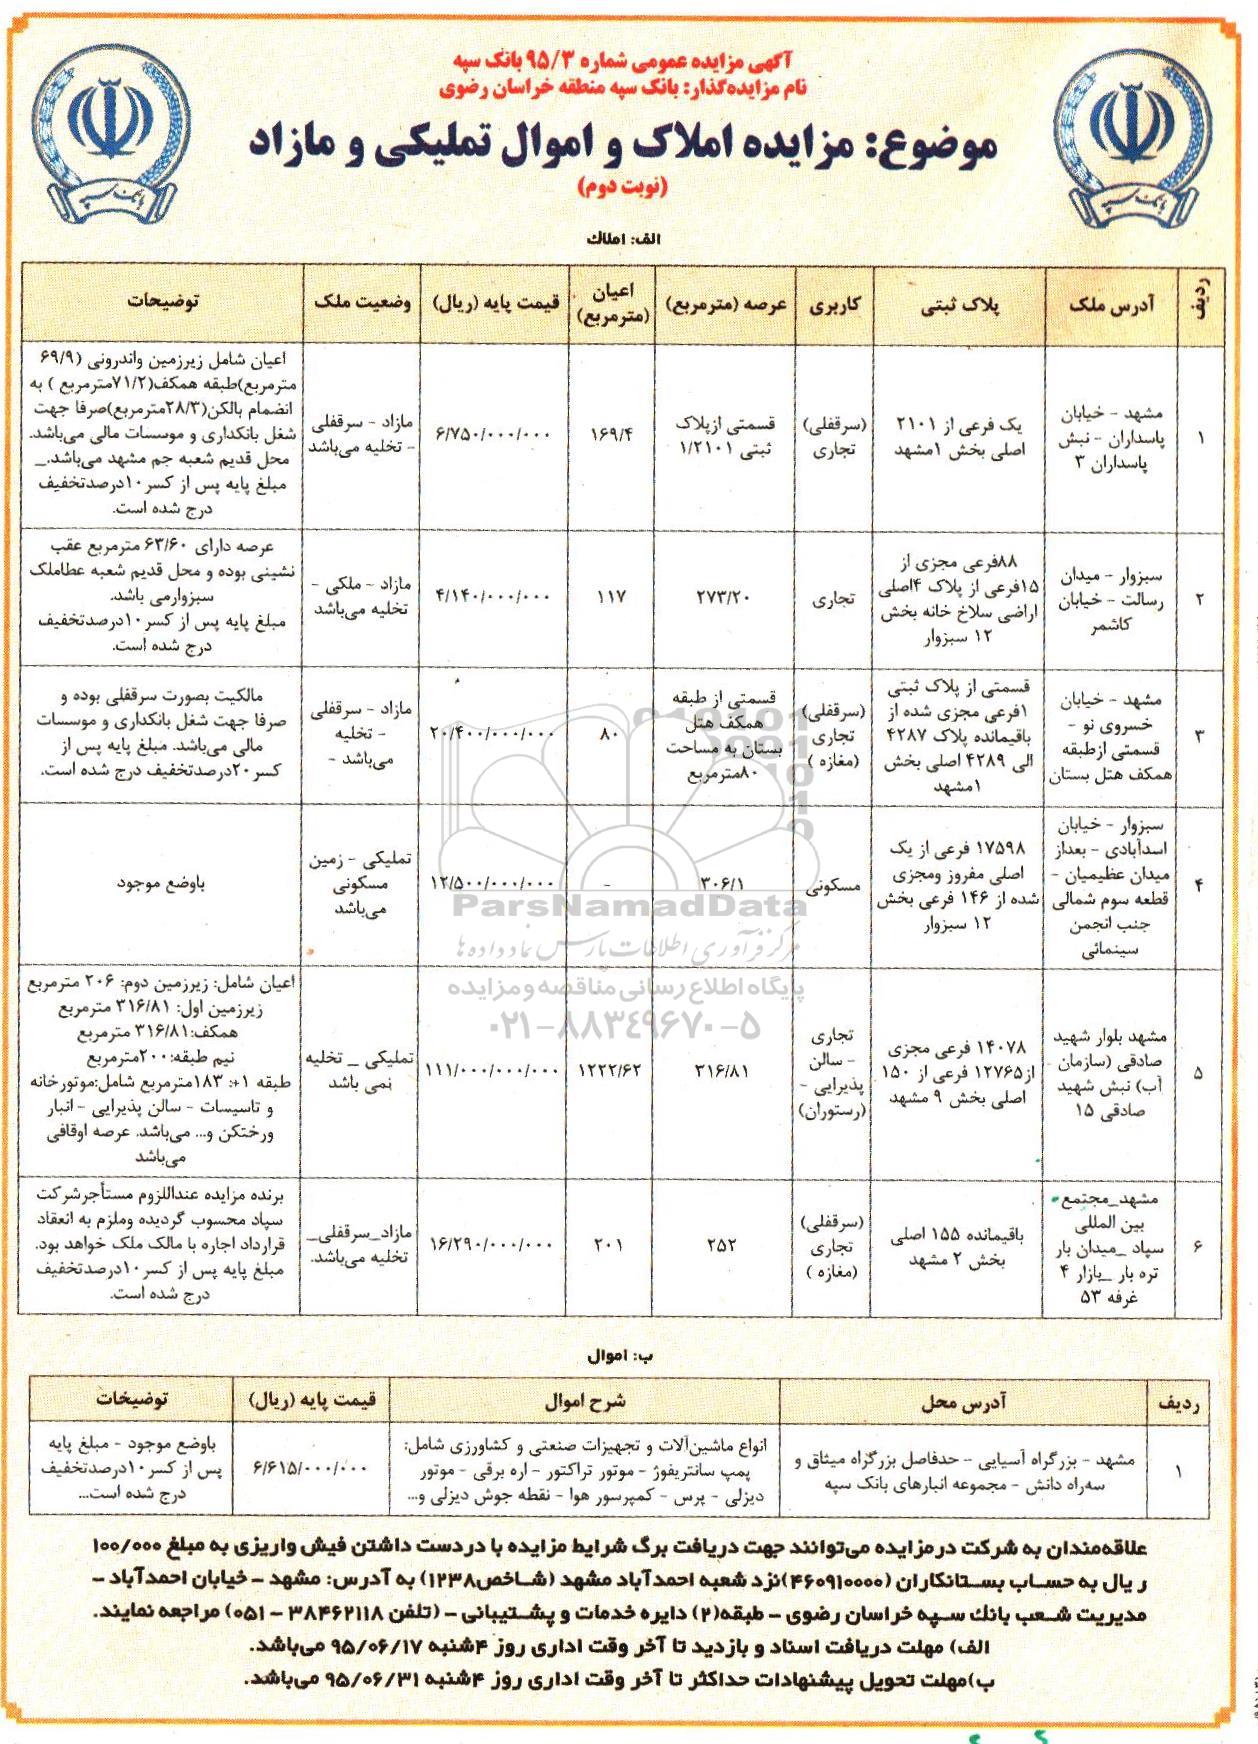 آگهی مزایده عمومی شماره ۹۵/۳ بانک سپه
نام مزایده‌گذار: بانک سپه منطقه خراسان رضوی
موضوع: مزایده املاک و اموال تملیکی و مازاد
(نوبت دوم)
بانک سپه
بانک سپه
الف: املاک
ردیف
آدرس ملک
پلاک ثبتی
کاربری
عرصه (مترمربع)
اعیان
(مترمربع)
قیمت پایه (ریال)
وضعیت ملک
توضیحات
۱
مشهد - خیابان
پاسداران - نبش
پاسداران ۳
یک فرعی از ۲۱۰۱
اصلی بخش ۱مشهد
(سرقفلی)
تجاری
قسمتی ازپلاک
ثبتی ۱/۲۱۰۱
۱۶۹/۴
۶/۷۵۰/۰۰۰/۰۰۰
مازاد - سرقفلی
- تخلیه می‌باشد
اعیان شامل زیرزمین واندرونی (۶۹/۹
مترمربع)طبقه همکف(۷۱/۲مترمربع ) به
انضمام بالکن(۲۸/۳مترمربع)صرفا جهت
شغل بانکداری و موسسات مالی می‌باشد.
محل قدیم شعبه جم مشهد می‌باشد._
مبلغ پایه پس از کسر۱۰درصدتخفیف
درج شده است.
۲
سبزوار - میدان
رسالت - خیابان
کاشمر
۸۸فرعی مجزی از
۱۵فرعی از پلاک ۴اصلی
اراضی سلاخ خانه بخش
۱۲ سبزوار
تجاری
۲۷۳/۲۰
۱۱۷
۴/۱۴۰/۰۰۰/۰۰۰
مازاد - ملکی -
تخلیه می‌باشد
عرصه دارای ۶۳/۶۰ مترمربع عقب
نشینی بوده و محل قدیم شعبه عطاملک
سبزوارمی باشد.
مبلغ پایه پس از کسر۱۰درصدتخفیف
درج شده است.
۳
مشهد - خیابان
خسروی نو -
قسمتی ازطبقه
همکف هتل بستان
قسمتی از پلاک ثبتی
۱فرعی مجزی شده از
باقیمانده پلاک ۴۲۸۷
الی ۴۲۸۹ اصلی بخش
۱مشهد
(سرقفلی)
تجاری
(مغازه )
قسمتی از طبقه
همکف هتل
بستان به مساحت
۸۰مترمربع
۸۰
۲۰/۴۰۰/۰۰۰/۰۰۰
مازاد - سرقفلی
- تخلیه
می‌باشد -
مالکیت بصورت سرقفلی بوده و
صرفا جهت شغل بانکداری و موسسات
مالی می‌باشد. مبلغ پایه پس از
کسر۲۰درصدتخفیف درج شده است.
۴
سبزوار - خیابان
اسدآبادی - بعداز
میدان عظیمیان -
قطعه سوم شمالی
جنب انجمن
سینمائی
۱۷۵۹۸ فرعی از یک
اصلی مفروز ومجزی
شده از ۱۴۶ فرعی بخش
۱۲ سبزوار
مسکونی
۳۰۶/۱
-
۱۲/۵۰۰/۰۰۰/۰۰۰
تملیکی - زمین
مسکونی
می‌باشد
باوضع موجود
ParsNamadData
مرکز فرآوری اطلاعات پارس نماد داده‌ها
پایگاه اطلاع رسانی مناقصه و مزایده
۰۲۱-۸۸۳۴۹۶۷۰-۵
۵
مشهد بلوار شهید
صادقی (سازمان
آب) نبش شهید
صادقی ۱۵
۱۴۰۷۸ فرعی مجزی
از۱۲۷۶۵ فرعی از ۱۵۰
اصلی بخش ۹ مشهد
تجاری
- سالن
پذیرایی -
(رستوران)
۳۱۶/۸۱
۱۲۲۲/۶۲
۱۱۱/۰۰۰/۰۰۰/۰۰۰
تملیکی _ تخلیه
نمی باشد
اعیان شامل: زیرزمین دوم: ۲۰۶ مترمربع
زیرزمین اول: ۳۱۶/۸۱ مترمربع
همکف:۳۱۶/۸۱ مترمربع
نیم طبقه:۲۰۰مترمربع
طبقه ۱+: ۱۸۳مترمربع شامل:موتورخانه
و تاسیسات - سالن پذیرایی - انبار
ورختکن و... می‌باشد. عرصه اوقافی
می‌باشد
۶
مشهد_مجتمع
بین المللی
سپاد _میدان بار
تره بار _بازار ۴
غرفه ۵۳
باقیمانده ۱۵۵ اصلی
بخش ۲ مشهد
(سرقفلی)
تجاری
(مغازه )
۲۵۲
۲۰۱
۱۶/۲۹۰/۰۰۰/۰۰۰
مازاد_سرقفلی_
تخلیه می‌باشد.
برنده مزایده عنداللزوم مستأجرشرکت
سپاد محسوب گردیده وملزم به انعقاد
قرارداد اجاره با مالک ملک خواهد بود.
مبلغ پایه پس از کسر۱۰درصدتخفیف
درج شده است.
ب: اموال
ردیف
آدرس محل
شرح اموال
قیمت پایه (ریال)
توضیحات
۱
مشهد - بزرگراه آسیایی - حدفاصل بزرگراه میثاق و
سه‌راه دانش - مجموعه انبارهای بانک سپه
انواع ماشین‌آلات و تجهیزات صنعتی و کشاورزی شامل:
پمپ سانتریفوژ - موتور تراکتور - اره برقی - موتور
دیزلی - پرس - کمپرسور هوا - نقطه جوش دیزلی و...
۶/۶۱۵/۰۰۰/۰۰۰
باوضع موجود - مبلغ پایه
پس از کسر۱۰درصدتخفیف
درج شده است...
علاقه‌مندان به شرکت درمزایده می‌توانند جهت دریافت برگ شرایط مزایده با دردست داشتن فیش واریزی به مبلغ ۱۰۰/۰۰۰
ریال به حساب بستانکاران (۴۶۰۹۱۰۰۰۰)نزد شعبه احمدآباد مشهد (شاخص۱۲۳۸) به آدرس: مشهد - خیابان احمدآباد -
مدیریت شعب بانک سپه خراسان رضوی - طبقه(۲) دایره خدمات و پشتیبانی - (تلفن ۳۸۴۶۲۱۱۸ - ۰۵۱) مراجعه نمایند.
الف) مهلت دریافت اسناد و بازدید تا آخر وقت اداری روز ۴شنبه ۹۵/۰۶/۱۷ می‌باشد.
ب)مهلت تحویل پیشنهادات حداکثر تا آخر وقت اداری روز ۴شنبه ۹۵/۰۶/۳۱ می‌باشد.